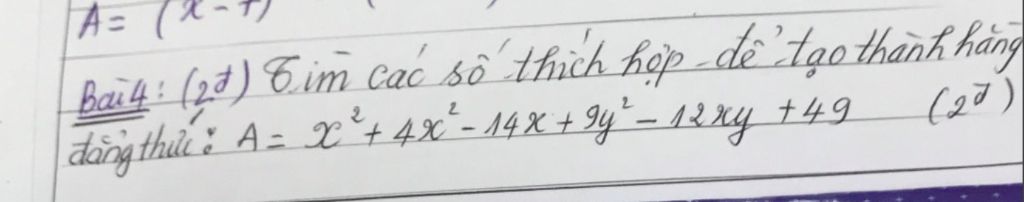 A = (x - 7)
Bài 4: (2đ) Tìm các số thích hợp để tạo thành hằng
đẳng thức: A = x² + 4x² - 14x + 9y² - 12xy + 49 (2đ)